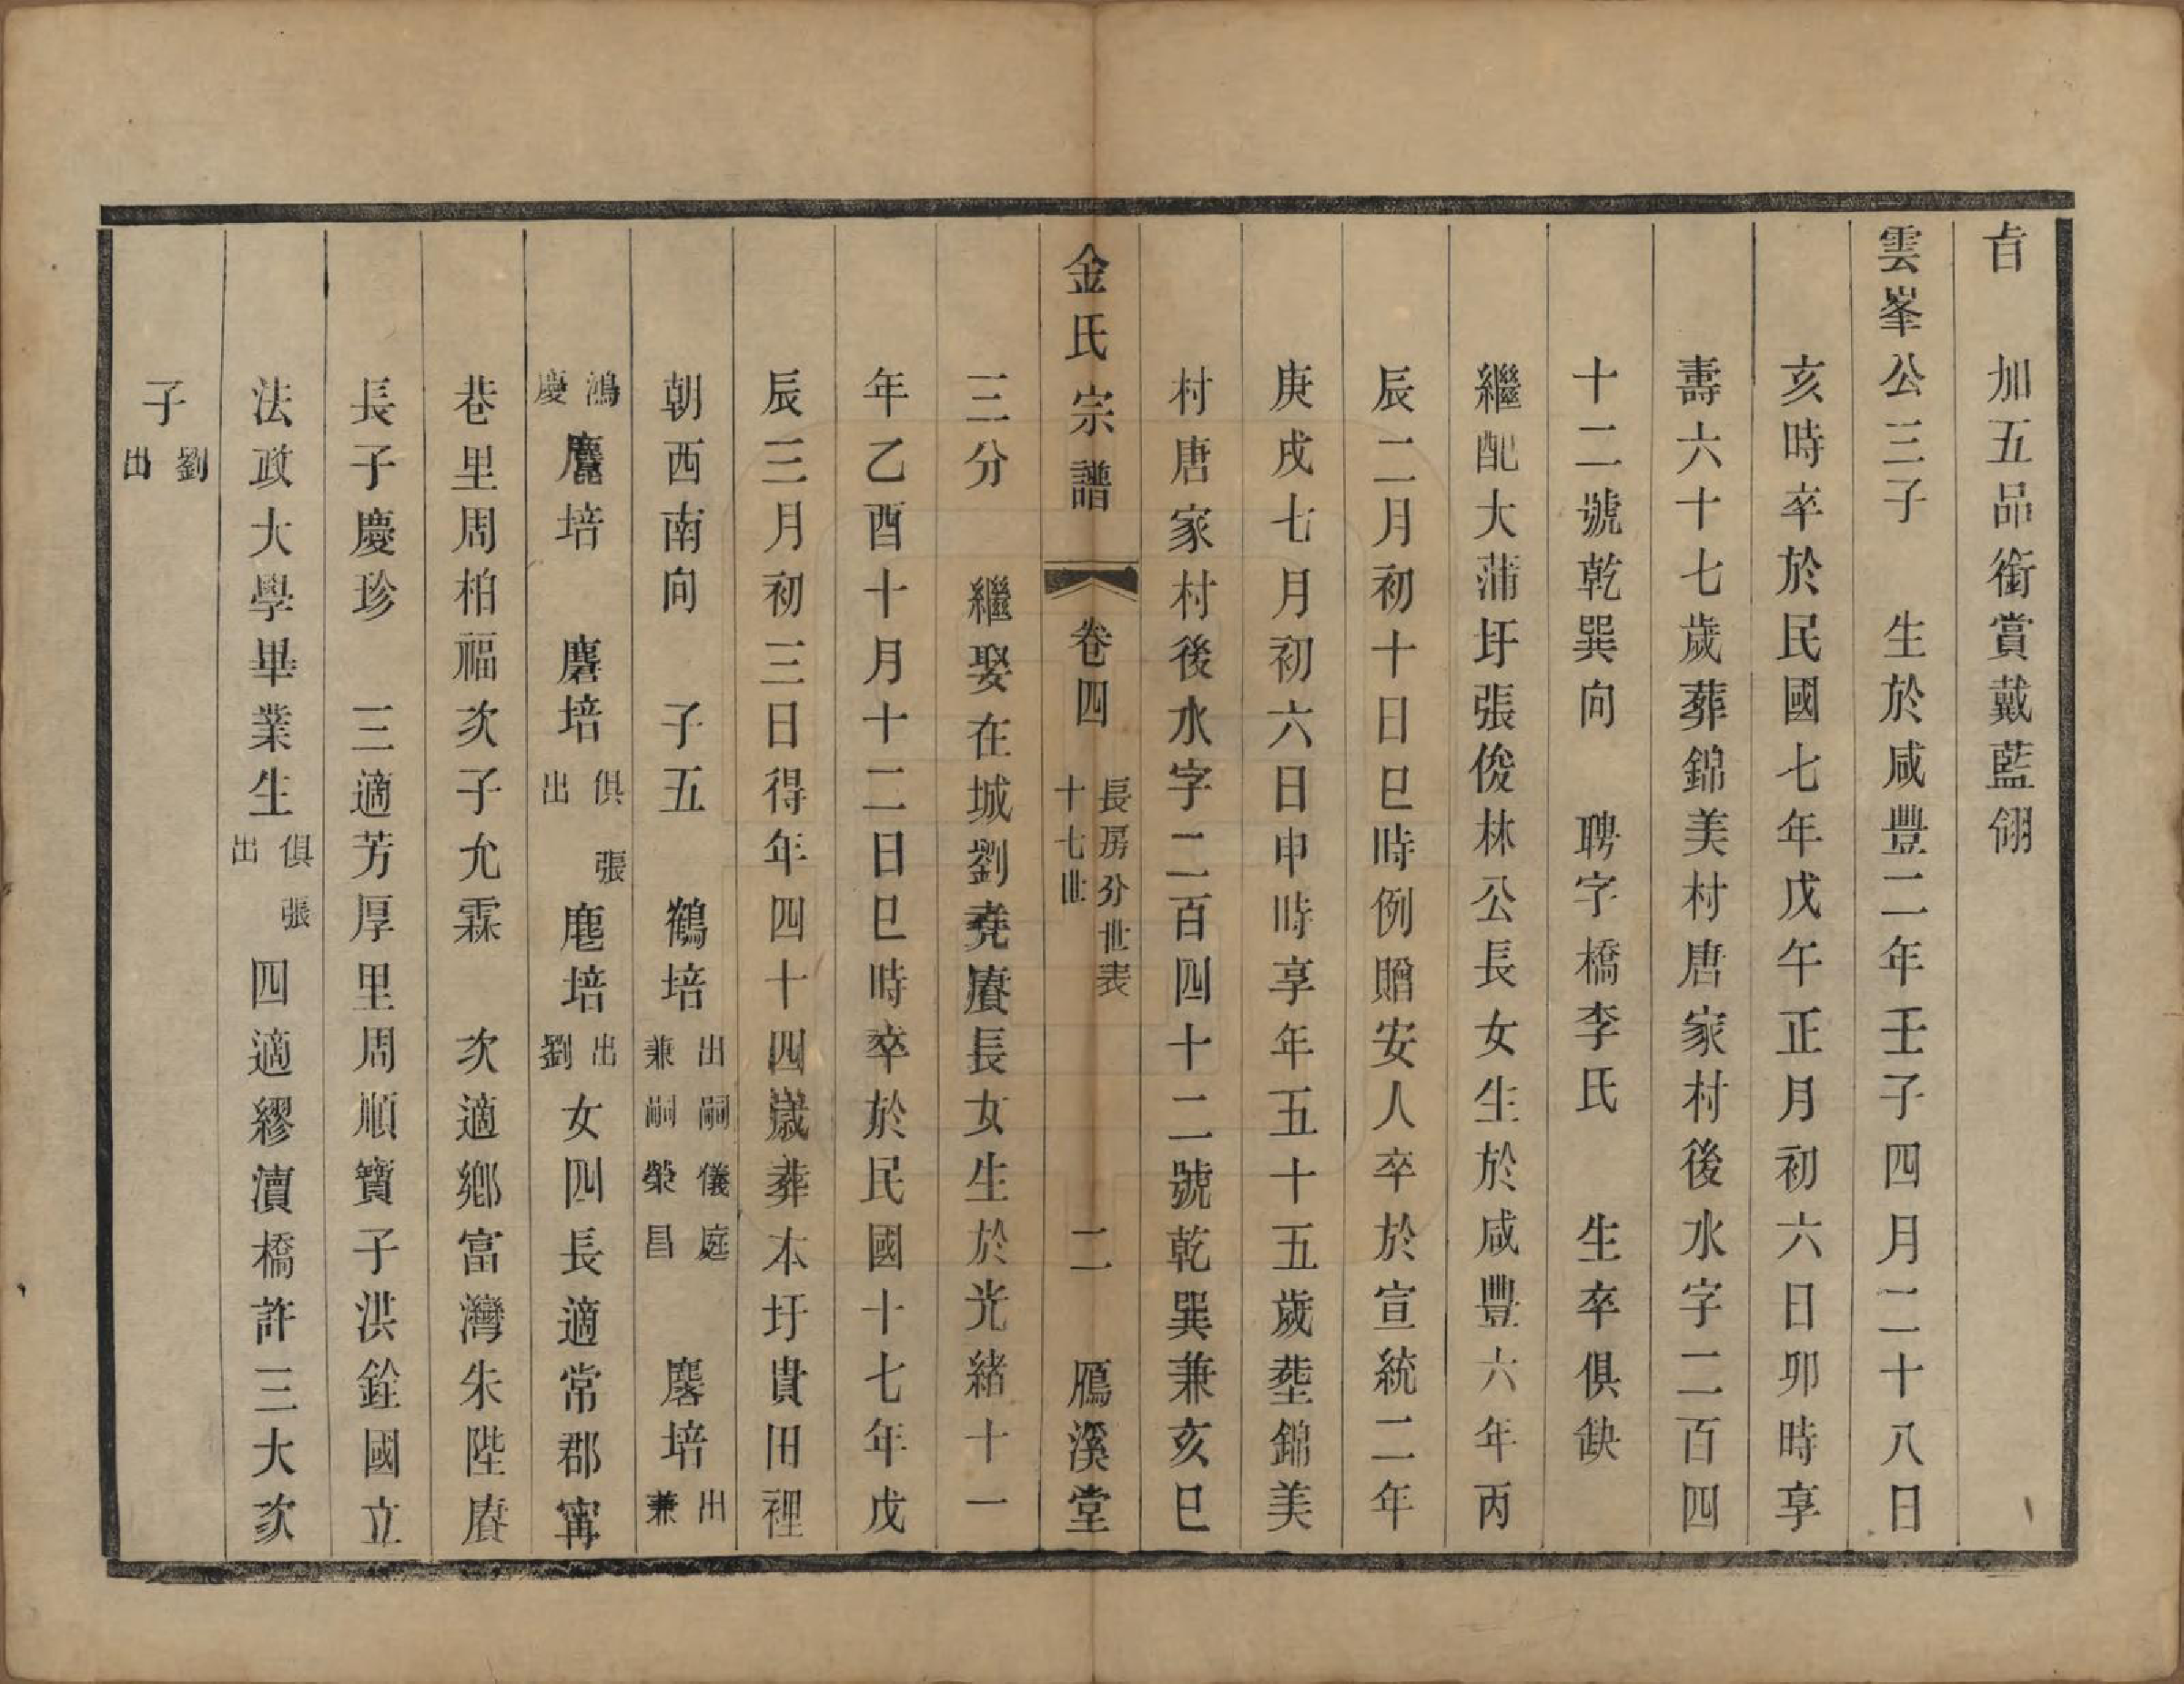 㫖 加五品銜賞戴藍翎
雲峯公三子 生於咸豐二年壬子四月二十八日
亥時卒於民國七年戊午正月初六日卯時享
壽六十七歲葬錦美村唐家村後水字二百四
十二號乾巽向 聘字橋李氏 生卒俱缺
繼配大蒲圩張俊林公長女生於咸豐六年丙
辰二月初十日巳時例贈安人卒於宣統二年
庚戌七月初六日申時享年五十五歲塟錦美
村唐家村後水字二百四十二號乾巽兼亥巳
金氏宗譜 卷四 長房分世表 十七世 二 鴈溪堂
三分 繼娶在城劉堯賡長女生於光緒十一
年乙酉十月十二日巳時卒於民國十七年戊
辰三月初三日得年四十四歲葬本圩貴田裡
朝西南向 子五 鶴培 出嗣儀庭 兼嗣榮昌 麐培 出兼
鴻慶 麿培 麿培 俱張出 麀培 劉出 女四長適常郡甯
巷里周柏福次子允霖 次適鄉富灣朱陛賡
長子慶珍 三適芳厚里周順寶子洪銓國立
法政大學畢業生 俱張出 四適繆瀆橋許三大次
子 劉出